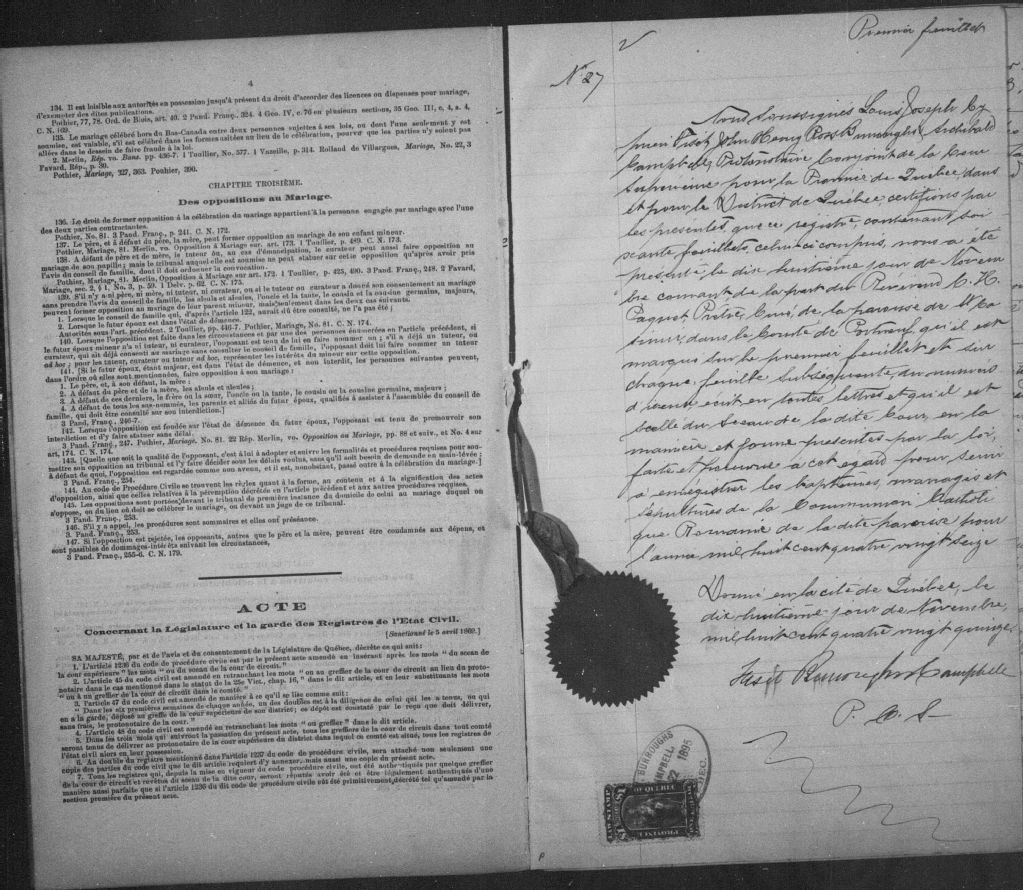 4
134. Il est loisible aux autorités en possession jusqu'à présent du droit d'accorder des licences ou dispenses pour mariage,
d'exempter des dites publications.
Pothier, 77, 78. Ord. de Blois, art. 40. 2 Pand. Franç., 324. 4 Geo. IV, c. 76 en plusieurs sections, 35 Geo. III, c. 4, s. 4,
C. N. 169.
135. Le mariage célébré hors du Bas-Canada entre deux personnes sujettes à ses lois, ou dont l'une seulement y est
soumise, est valable, s'il est célébré dans les formes usitées au lieu de la célébration, pourvu que les parties n'y soient pas
allées dans le dessein de faire fraude à la loi.
2. Merlin, Rép. vo. Bans. pp. 436-7. 1 Toullier, No. 577. 1 Vazeille, p. 314. Rolland de Villargues, Mariage, No. 22, 3
Favard, Rép., p. 30.
Pothier, Mariage, 327, 363. Pouhier, 390.
CHAPITRE TROISIÈME.
Des oppositions au Mariage.
136. Le droit de former opposition à la célébration du mariage appartient à la personne engagée par mariage avec l'une
des deux parties contractantes.
Pothier, No. 81. 3 Pand. Franç., p. 241. C. N. 172.
137. Le père, et à défaut du père, la mère, peut former opposition au mariage de son enfant mineur.
Pothier, Mariage, 81. Merlin, vo. Opposition à Mariage sur. art. 173. 1 Toullier, p. 489. C. N. 173.
138. A défaut de père et de mère, le tuteur ou, au cas d'émancipation, le curateur peut aussi faire opposition au
mariage de son pupille; mais le tribunal auquel elle est soumise ne peut statuer sur cette opposition qu'après avoir pris
l'avis du conseil de famille, dont il doit ordonner la convocation.
Pothier, Mariage, 81. Merlin, Opposition à Mariage sur art. 173. 1 Toullier, p. 425, 490. 3 Pand. Franç., 248. 2 Favard,
Mariage, sec. 2, § 1, No. 3, p. 59. 1 Delv. p. 62. C. N. 175.
139. S'il n'y a ni père, ni mère, ni tuteur, ni curateur, ou si le tuteur ou curateur a donné son consentement au mariage
sans prendre l'avis du conseil de famille, les aïeuls et aïeules, l'oncle et la tante, le cousin et la cousine germains, majeurs,
peuvent former opposition au mariage de leur parent mineur, mais seulement dans les deux cas suivants.
1. Lorsque le conseil de famille qui, d'après l'article 122, aurait dû être consulté, ne l'a pas été;
2. Lorsque le futur époux est dans l'état de démence.
Autorités sous l'art. précédent. 2 Toullier, pp. 446-7. Pothier, Mariage, No. 81. C. N. 174.
140. Lorsque l'opposition est faite dans les circonstances et par une des personnes énoncées en l'article précédent, si
le futur époux mineur n'a ni tuteur, ni curateur, l'opposant est tenu de lui en faire nommer un; s'il a déjà un tuteur, ou
curateur, qui ait déjà consenti au mariage sans consulter le conseil de famille, l'opposant doit lui faire nommer un tuteur
ad hoc; pour les tuteur, curateur ou tuteur ad hoc, représenter les intérêts du mineur sur cette opposition.
141. [Si le futur époux, étant majeur, est dans l'état de démence, et non interdit, les personnes suivantes peuvent,
dans l'ordre où elles sont mentionnées, faire opposition à son mariage:
1. Le père, et, à son défaut, la mère;
2. A défaut du père et de la mère, les aïeuls et aïeules;
3. A défaut de ces derniers, le frère ou la sœur, l'oncle ou la tante, le cousin ou la cousine germains, majeurs;
4. A défaut de tous les sus-nommés, les parents et alliés du futur époux, qualifiés à assister à l'assemblée du conseil de
famille, qui doit être consulté sur son interdiction.]
3 Pand. Franç., 246-7.
142. Lorsque l'opposition est fondée sur l'état de démence du futur époux, l'opposant est tenu de promouvoir son
interdiction et d'y faire statuer sans délai.
3 Pand. Franç., 247. Pothier, Mariage, No. 81. 22 Rép. Merlin, vo. Opposition au Mariage, pp. 88 et suiv., et No. 4 sur
art. 174. C. N. 174.
143. [Quelle que soit la qualité de l'opposant, c'est à lui à adopter et suivre les formalités et procédures requises pour sou-
mettre son opposition au tribunal et l'y faire décider sous les délais voulus, sans qu'il soit besoin de demande en main-levée;
à défaut de quoi, l'opposition est regardée comme non avenue, et il est, nonobstant, passé outre à la célébration du mariage.]
3 Pand. Franç., 254.
144. Au code de Procédure Civile se trouvent les règles quant à la forme, au contenu et à la signification des actes
d'opposition, ainsi que celles relatives à la péremption décrétée en l'article précédent et aux autres procédures requises.
145. Les oppositions sont portées devant le tribunal de première instance du domicile de celui au mariage duquel on
s'oppose, ou du lieu où doit se célébrer le mariage, ou devant un juge de ce tribunal.
3 Pand. Franç., 253.
146. S'il y a appel, les procédures sont sommaires et elles ont préséance.
3. Pand. Franç., 253.
147. Si l'opposition est rejetée, les opposants, autres que le père et la mère, peuvent être condamnés aux dépens, et
sont passibles de dommages-intérêts suivant les circonstances,
3 Pand. Franç., 255-6. C. N. 179.
ACTE
Concernant la Législature et la garde des Registres de l'Etat Civil.
[Sanctionné le 5 avril 1869.]
SA MAJESTÉ, par et de l'avis et du consentement de la Législature de Québec, décrète ce qui suit:
1. L'article 1236 du code de procédure civile est par le présent acte amendé en insérant après les mots "du sceau de
la cour supérieure" les mots "ou du sceau de la cour de circuit."
2. L'article 45 du code civil est amendé en retranchant les mots "ou au greffier de la cour de circuit au lieu du proto-
notaire dans le cas mentionné dans le statut de la 25e Vict., chap. 16," dans le dit article, et en leur substituant les mots
"ou à un greffier de la cour de circuit dans le comté."
3. L'article 47 du code civil est amendé de manière à ce qu'il se lise comme suit:
"Dans les six premières semaines de chaque année, un des doubles est à la diligence de celui qui les a tenus, ou qui
en a la garde, déposé au greffe de la cour supérieure de son district; ce dépôt est constaté par le reçu que doit délivrer,
sans frais, le protonotaire de la cour."
4. L'article 48 du code civil est amendé en retranchant les mots "ou greffier" dans le dit article.
5. Dans les trois mois qui suivront la passation du présent acte, tous les greffiers de la cour de circuit dans tout comté
seront tenus de délivrer au protonotaire de la cour supérieure du district dans lequel ce comté est situé, tous les registres de
l'état civil alors en leur possession.
6. Au double du registre mentionné dans l'article 1237 du code de procédure civile, sera attaché non seulement une
copie des parties du code civil que le dit article requiert d'y annexer, mais aussi une copie du présent acte.
7. Tous les registres qui, depuis la mise en vigueur du code de procédure civile, ont été authentiqués par quelque greffier
de la cour de circuit et revêtus du sceau de la dite cour, seront réputés avoir été et être légalement authentiqués d'une
manière aussi parfaite que si l'article 1236 du dit code de procédure civile eût été primitivement décrété tel qu'amendé par la
section première du présent acte.
Premier feuillet
No 27
Nous Soussignés Louis Joseph Cy
prien Fiset, John Henry Ross Burroughs & Archibald
Campbell, Protonotaire Conjoint de la Cour
Supérieure pour la Province de Québec, dans
et pour le District de Québec certifions par
les présentes, que ce registre, contenant soi
xante feuillets, celui-ci compris, nous a été
présenté le dix huitième jour de Novem
bre courant de la part du Révérend C. H.
Paquet, Prêtre, Curé, de la paroisse de St Ca
simir, dans le Comté de Portneuf, qu'il est
marqué sur le premier feuillet et sur
chaque feuille subséquente, du numéro
d'icelle écrit en toutes lettres et qu'il est
scellé du Sceau de la dite Cour, en la
manière et forme prescrites par la loi,
faite et pourvue à cet égard pour servir
à enregistrer les baptêmes, mariages et
sépultures de la Communion Catholi
que Romaine de la dite paroisse pour
l'année mil huit cent quatre vingt seize
Donné en la cité de Québec, le
dix huitième jour de Novembre,
mil huit cent quatre vingt quinze.
Fiset Burroughs & Campbell
P. C. S.
BURROUGHS
CAMPBELL
22 1895
QUEBEC
LAW STAMP
OF QUEBEC
PROVINCE
$1